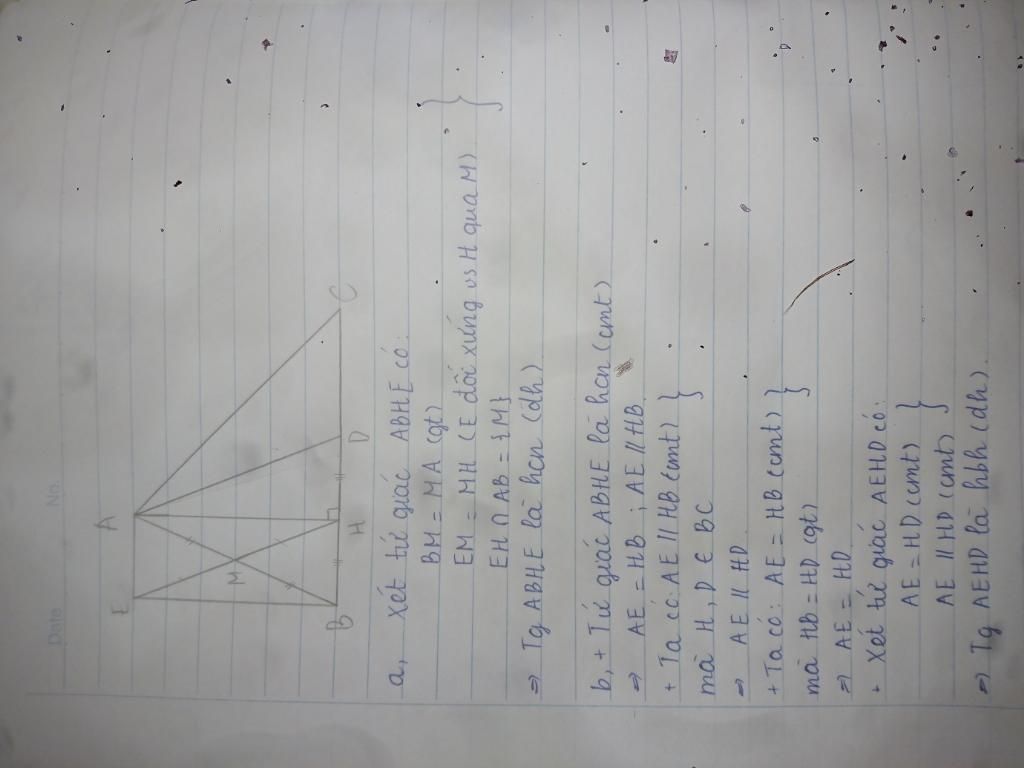 Date No.
E A
M
B H D C
a, Xét tứ giác ABHE có:
BM = MA (gt)
EM = MH (E đối xứng vs H qua M)
EH ∩ AB = {M}
=> Tg ABHE là hcn (dh)
b, + Tứ giác ABHE là hcn (cmt)
=> AE = HB ; AE // HB
+ Ta có: AE // HB (cmt)
mà H, D ∈ BC
=> AE // HD
+ Ta có: AE = HB (cmt)
mà HB = HD (gt)
=> AE = HD
+ Xét tứ giác AEHD có:
AE = HD (cmt)
AE // HD (cmt)
=> Tg AEHD là hbh (dh)